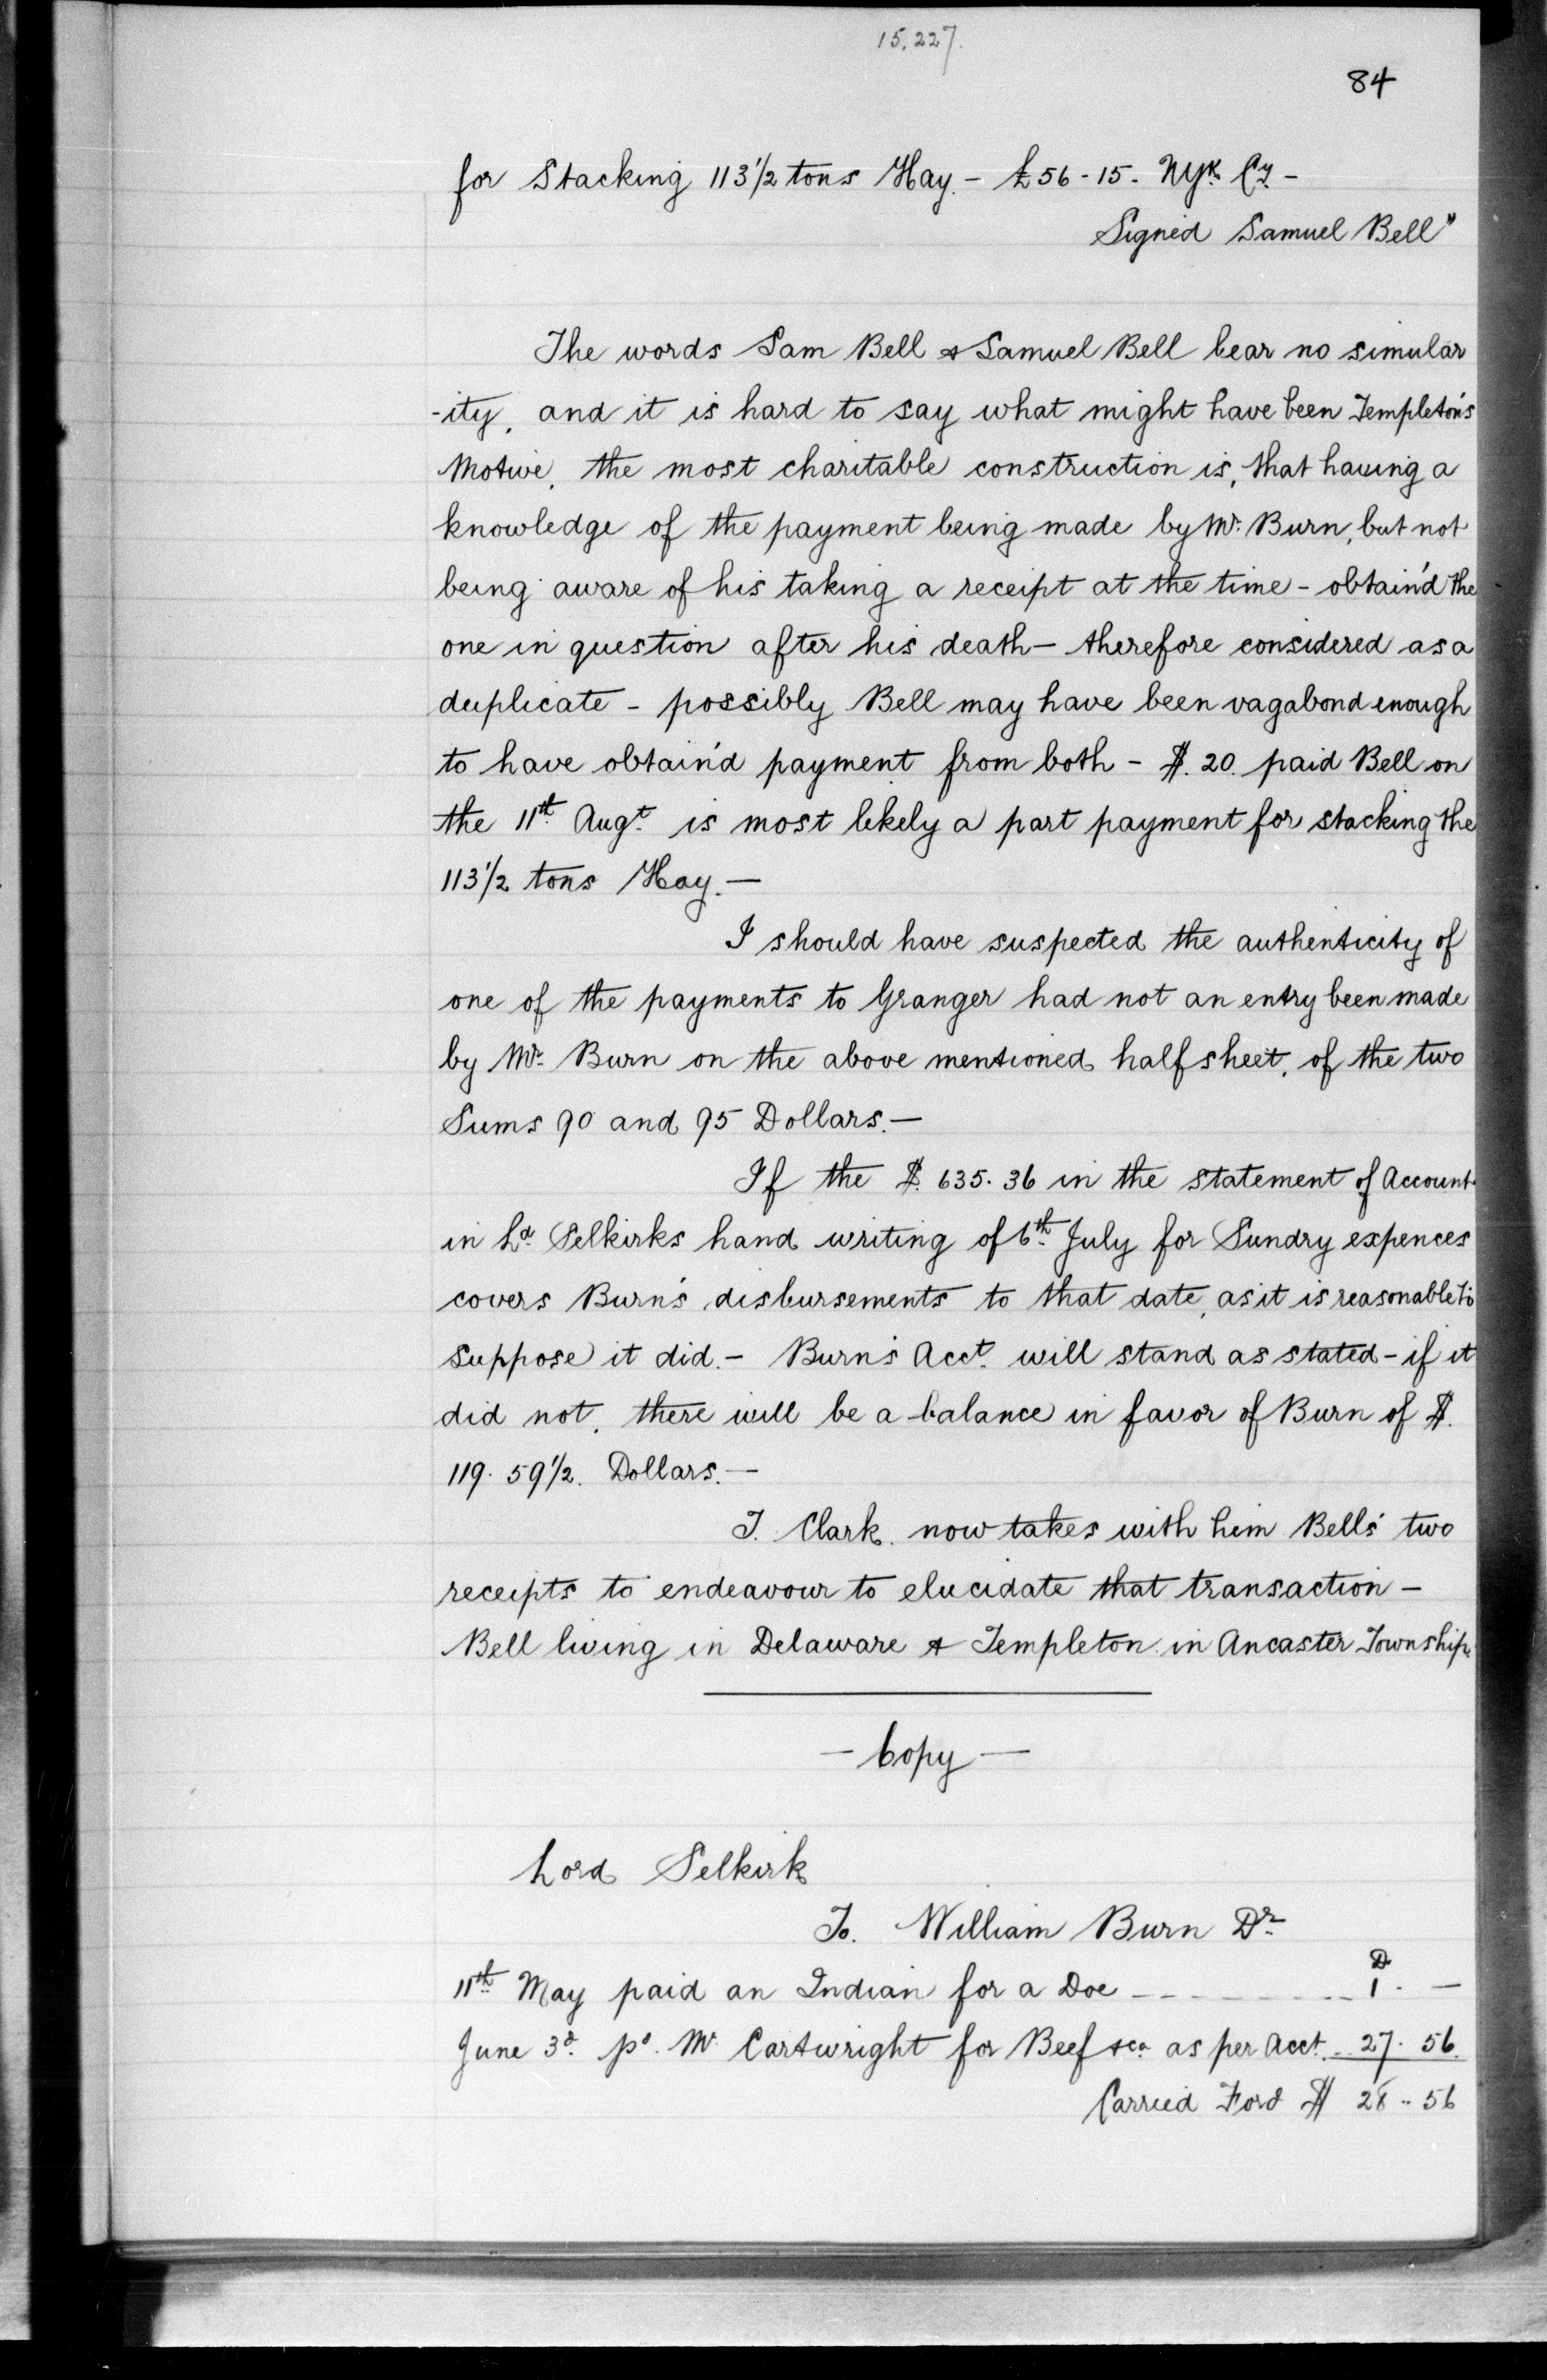 15,227.
84
for Stacking 113 1/2 tons Hay. - £56-15. NYk. Cy. -
Signed Samuel Bell"
The words Sam Bell & Samuel Bell bear no simular
-ity, and it is hard to say what might have been Templeton's
Motive, the most charitable construction is, that having a
knowledge of the payment being made by Mr. Burn, but not
being aware of his taking a receipt at the time - obtain'd the
one in question after his death - therefore considered as a
duplicate - possibly Bell may have been vagabond enough
to have obtain'd payment from both - $. 20. paid Bell on
the 11th. Augt. is most likely a part payment for stacking the
113 1/2 tons Hay. -
I should have suspected the authenticity of
one of the payments to Granger had not an entry been made
by Mr. Burn on the above mentioned half sheet, of the two
Sums 90 and 95 Dollars. -
If the $. 635. 36 in the statement of Account
in Ld. Selkirks hand writing of 6th. July for Sundry expences
covers Burn's disbursements to that date, as it is reasonable to
suppose it did. - Burn's Acct. will stand as stated - if it
did not, there will be a balance in favor of Burn of $.
119. 59 1/2. Dollars. -
T. Clark. now takes with him Bell's two
receipts to endeavour to elucidate that transaction -
Bell living in Delaware & Templeton in Ancaster Township.
- Copy -
Lord Selkirk
To. William Burn Dr.
D
11th. May paid an Indian for a Doe - - - - - - - - 1. -
June 3d. pd. Mr. Cartwright for Beef &ca. as per Acct. - 27. 56.
Carried Ford $ 28 .. 56